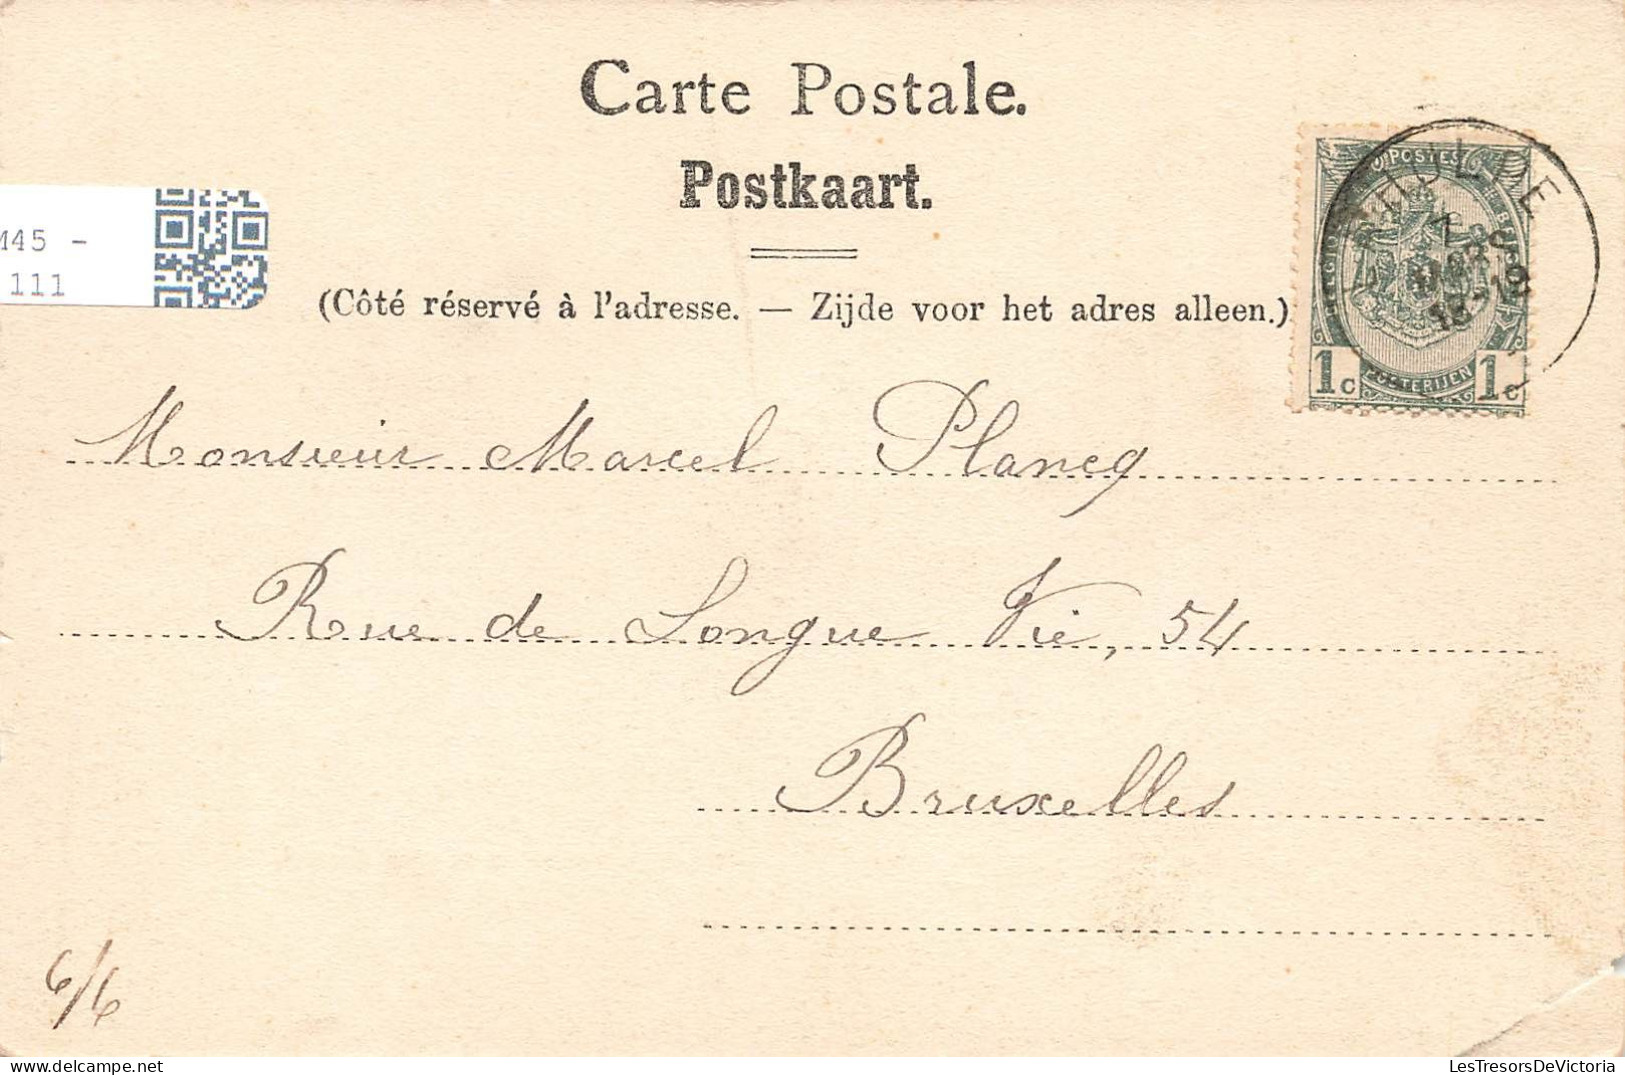 Carte Postale.
Postkaart.
M45 -
111
(Côté réservé à l'adresse. — Zijde voor het adres alleen.)
POSTES
1c POSTERIJEN 1c
MARS
Monsieur Marcel Plancq
Rue de Longue Vie, 54
Bruxelles
6/6
LesTresorsDeVictoria